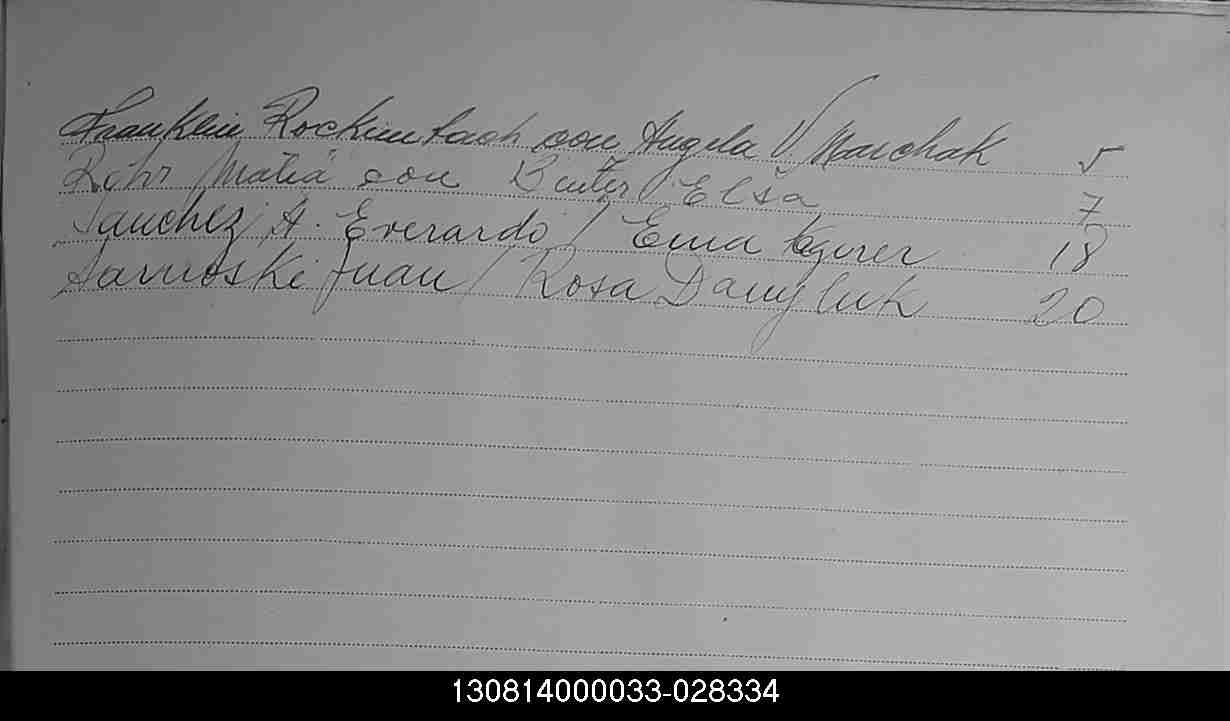 Franklin Rockimbach con Angela V Marchak 5
Rohr Matia con Beuter Elsa 7
Sanchez A. Everardo / Ema 18
Sarnoski Juan / Rosa Danyluk 20
130814000033-028334